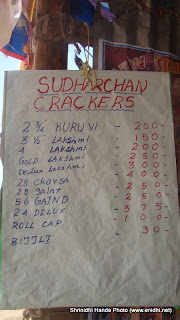 SUDHARCHAN
CRACKERS
2 ¾" KURUVI - 200-
3 ½" LAKSHMI - 150-
4 LAKSHMI - 200-
GOLD LAKSHMI - 250-
Delux LAKSHMI - 300-
28 CHORSA - 400-
28 Giant - 250-
56 GAIND - 250-
24 DELUX - 375-
ROLL CAP - 100-
BIJILI - 30-
Shrinidhi Hande Photo (www.enidhi.net)